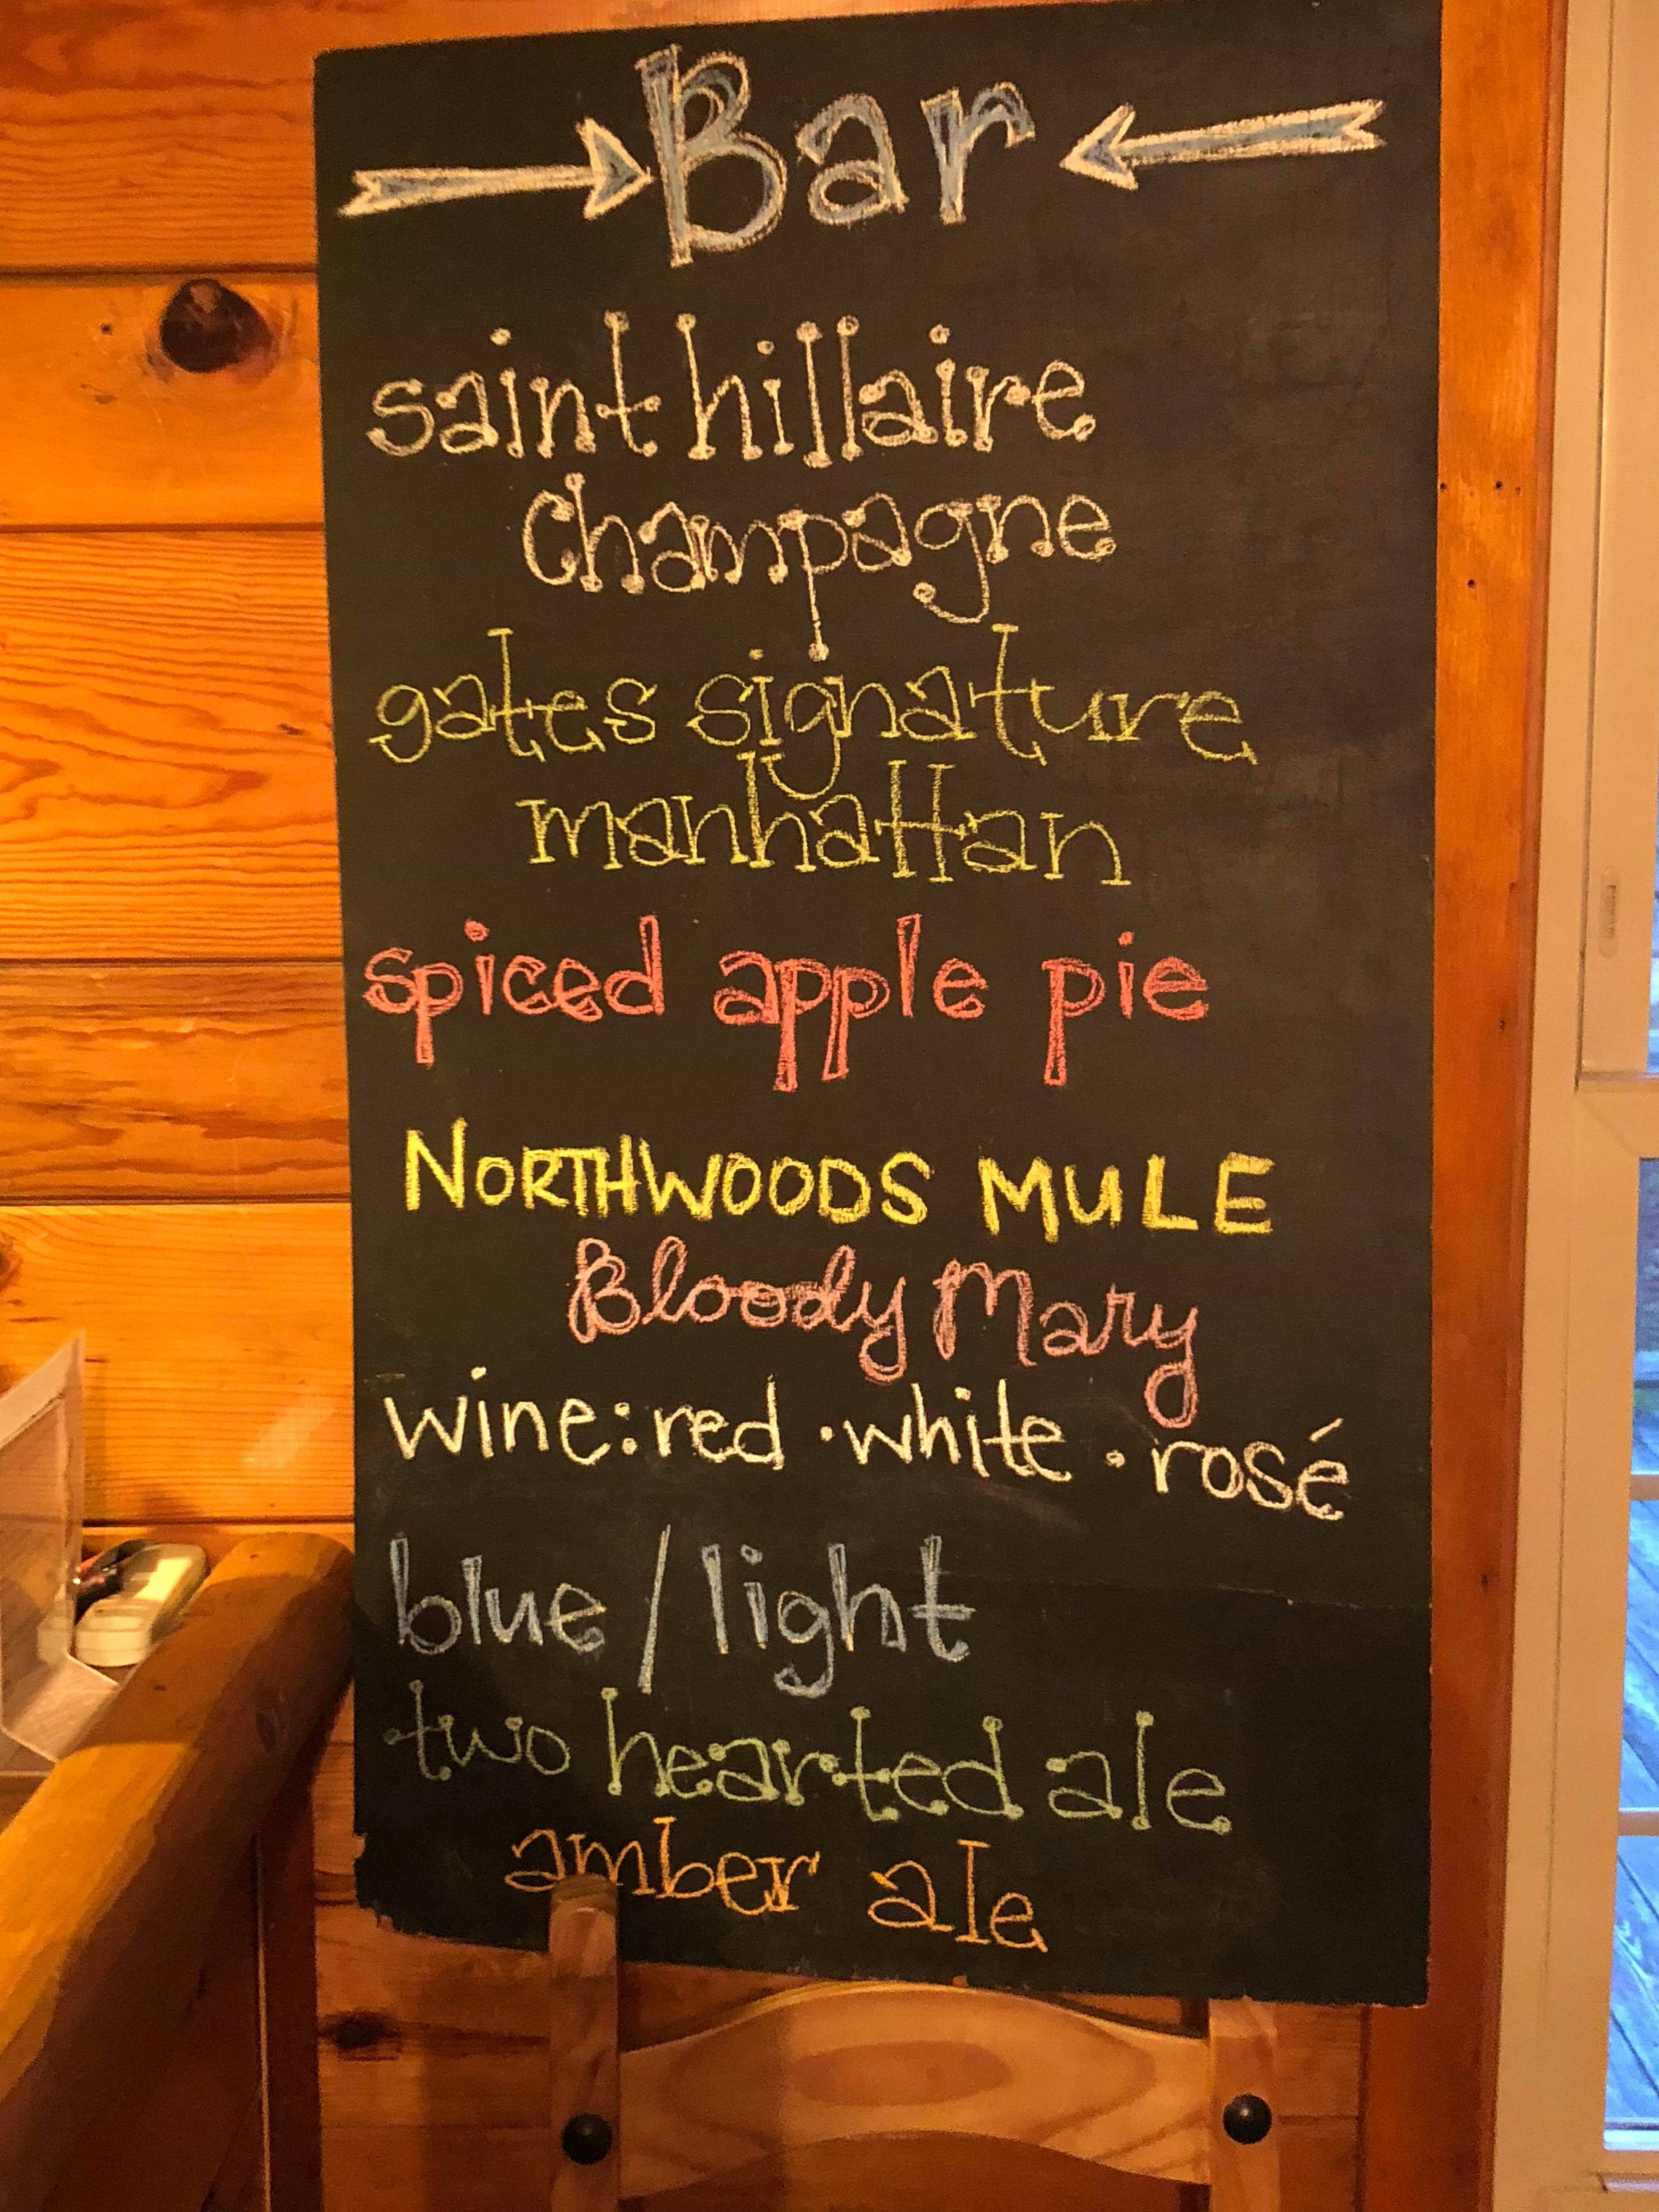 Bar
saint hillaire
Champagne
gates signature
manhattan
spiced apple pie
NORTHWOODS MULE
Bloody Mary
wine: red · white · rosé
blue / light
two hearted ale
amber ale